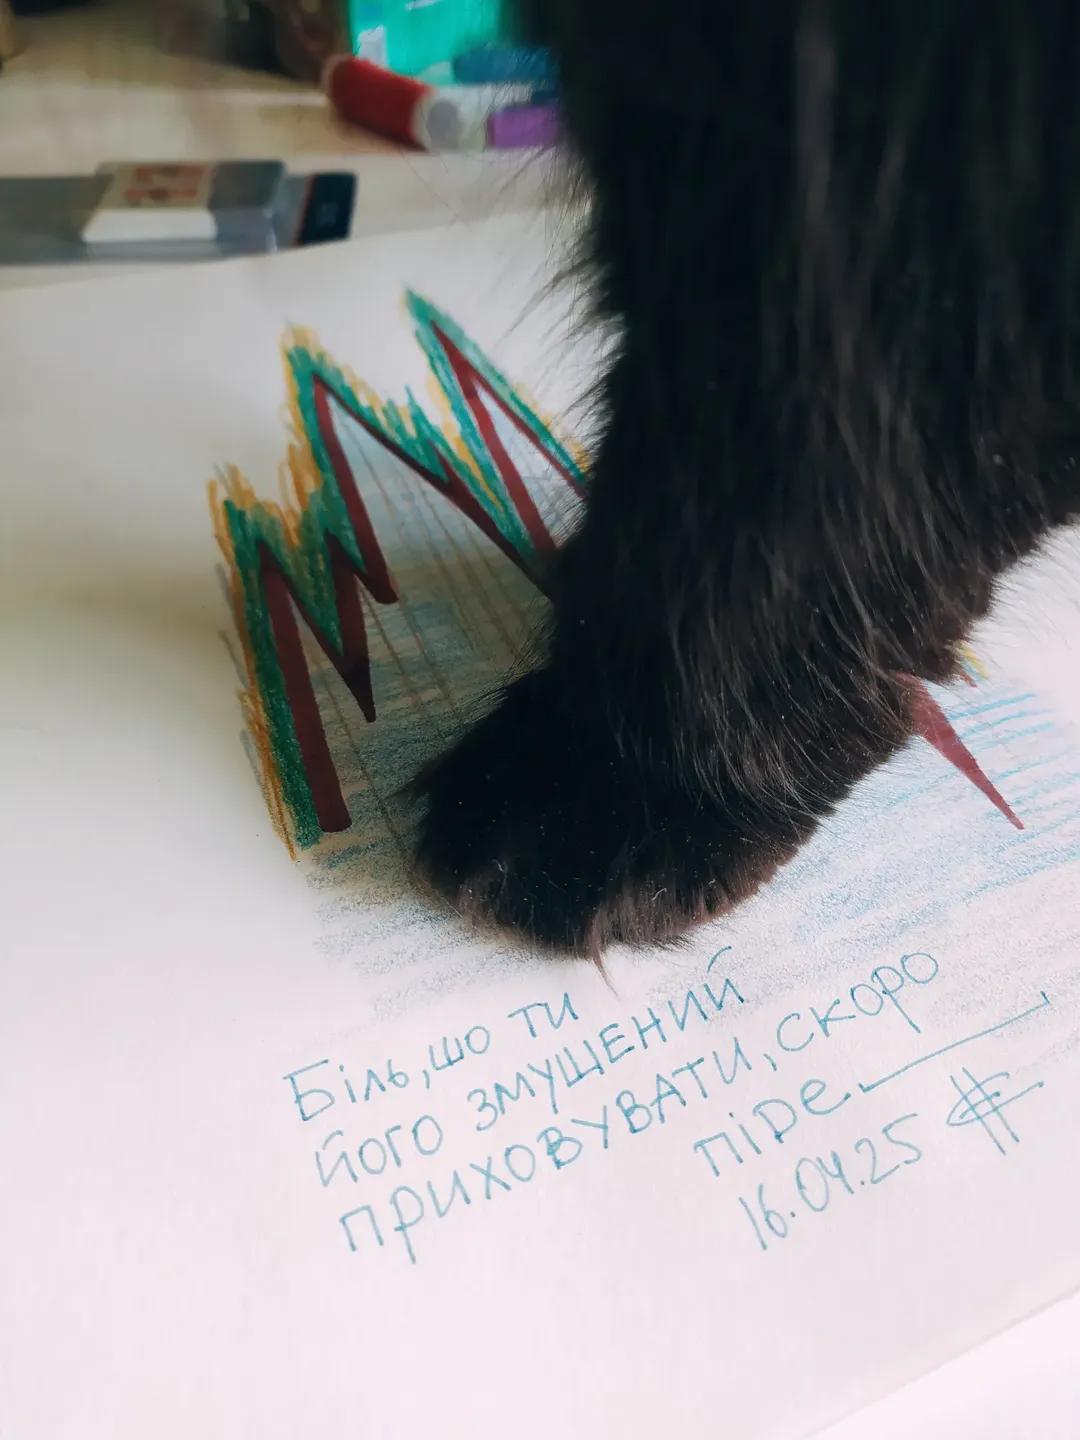 Біль, що ти
його змушений
приховувати, скоро
піде.
16.04.25